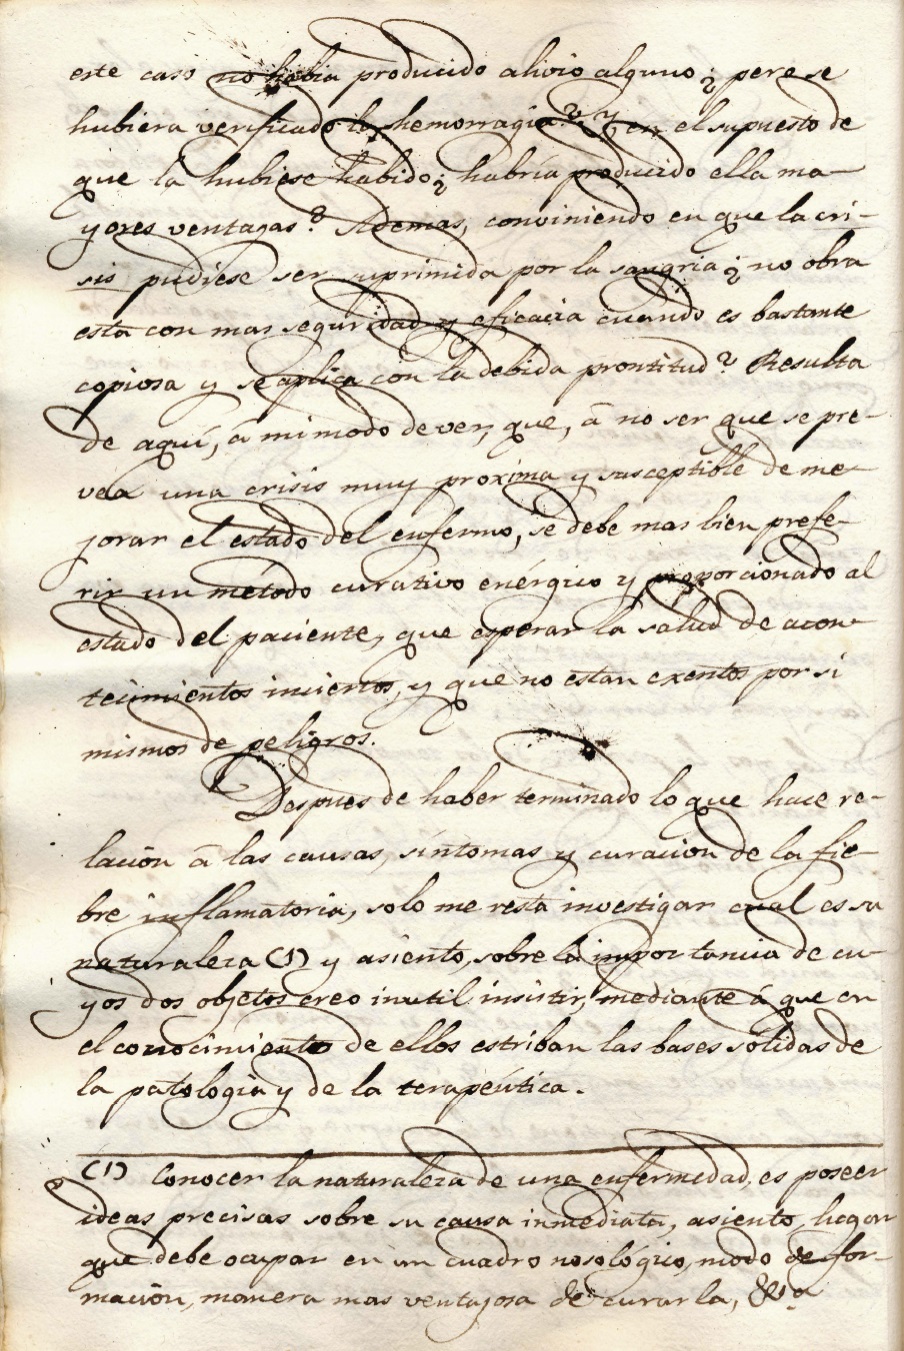 este caso no habia producido alivio alguno ¿ pero se
hubiera verificado la hemorragia? Y, en el supuesto de
que la hubiese habido ¿ habría producido ella ma-
yores ventagas? Ademas, conviniendo en que la cri-
sis pudiese ser suprimida por la sangria ¿ no obra
esta con mas seguridad y eficacia cuando es bastante
copiosa y se aplica con la debida prontitud? Resulta
de aquí, á mi modo de ver, que, á no ser que se pre-
vea una crisis muy proxima y susceptible de me-
jorar el estado del enfermo, se debe mas bien prefe-
rir un método curativo enérgico y proporcionado al
estado del paciente, que esperar la salud de acon-
tecimientos inciertos, y que no estan exentos por si
mismos de peligros.
Despues de haber terminado lo que hace re-
lación á las causas, síntomas y curación de la fie-
bre inflamatoria, solo me resta investigar cual es su
naturaleza (1) y asiento, sobre la importancia de cu-
yos dos objetos creo inutil insistir, mediante á que en
el conocimiento de ellos estriban las bases sólidas de
la patología y de la terapéutica.
(1) Conocer la naturaleza de una enfermedad, es poseer
ideas precisas sobre su causa inmediata, asiento, lugar
que debe ocupar en un cuadro nosológico, modo de for-
mación, manera mas ventajosa de curarla, &.ª